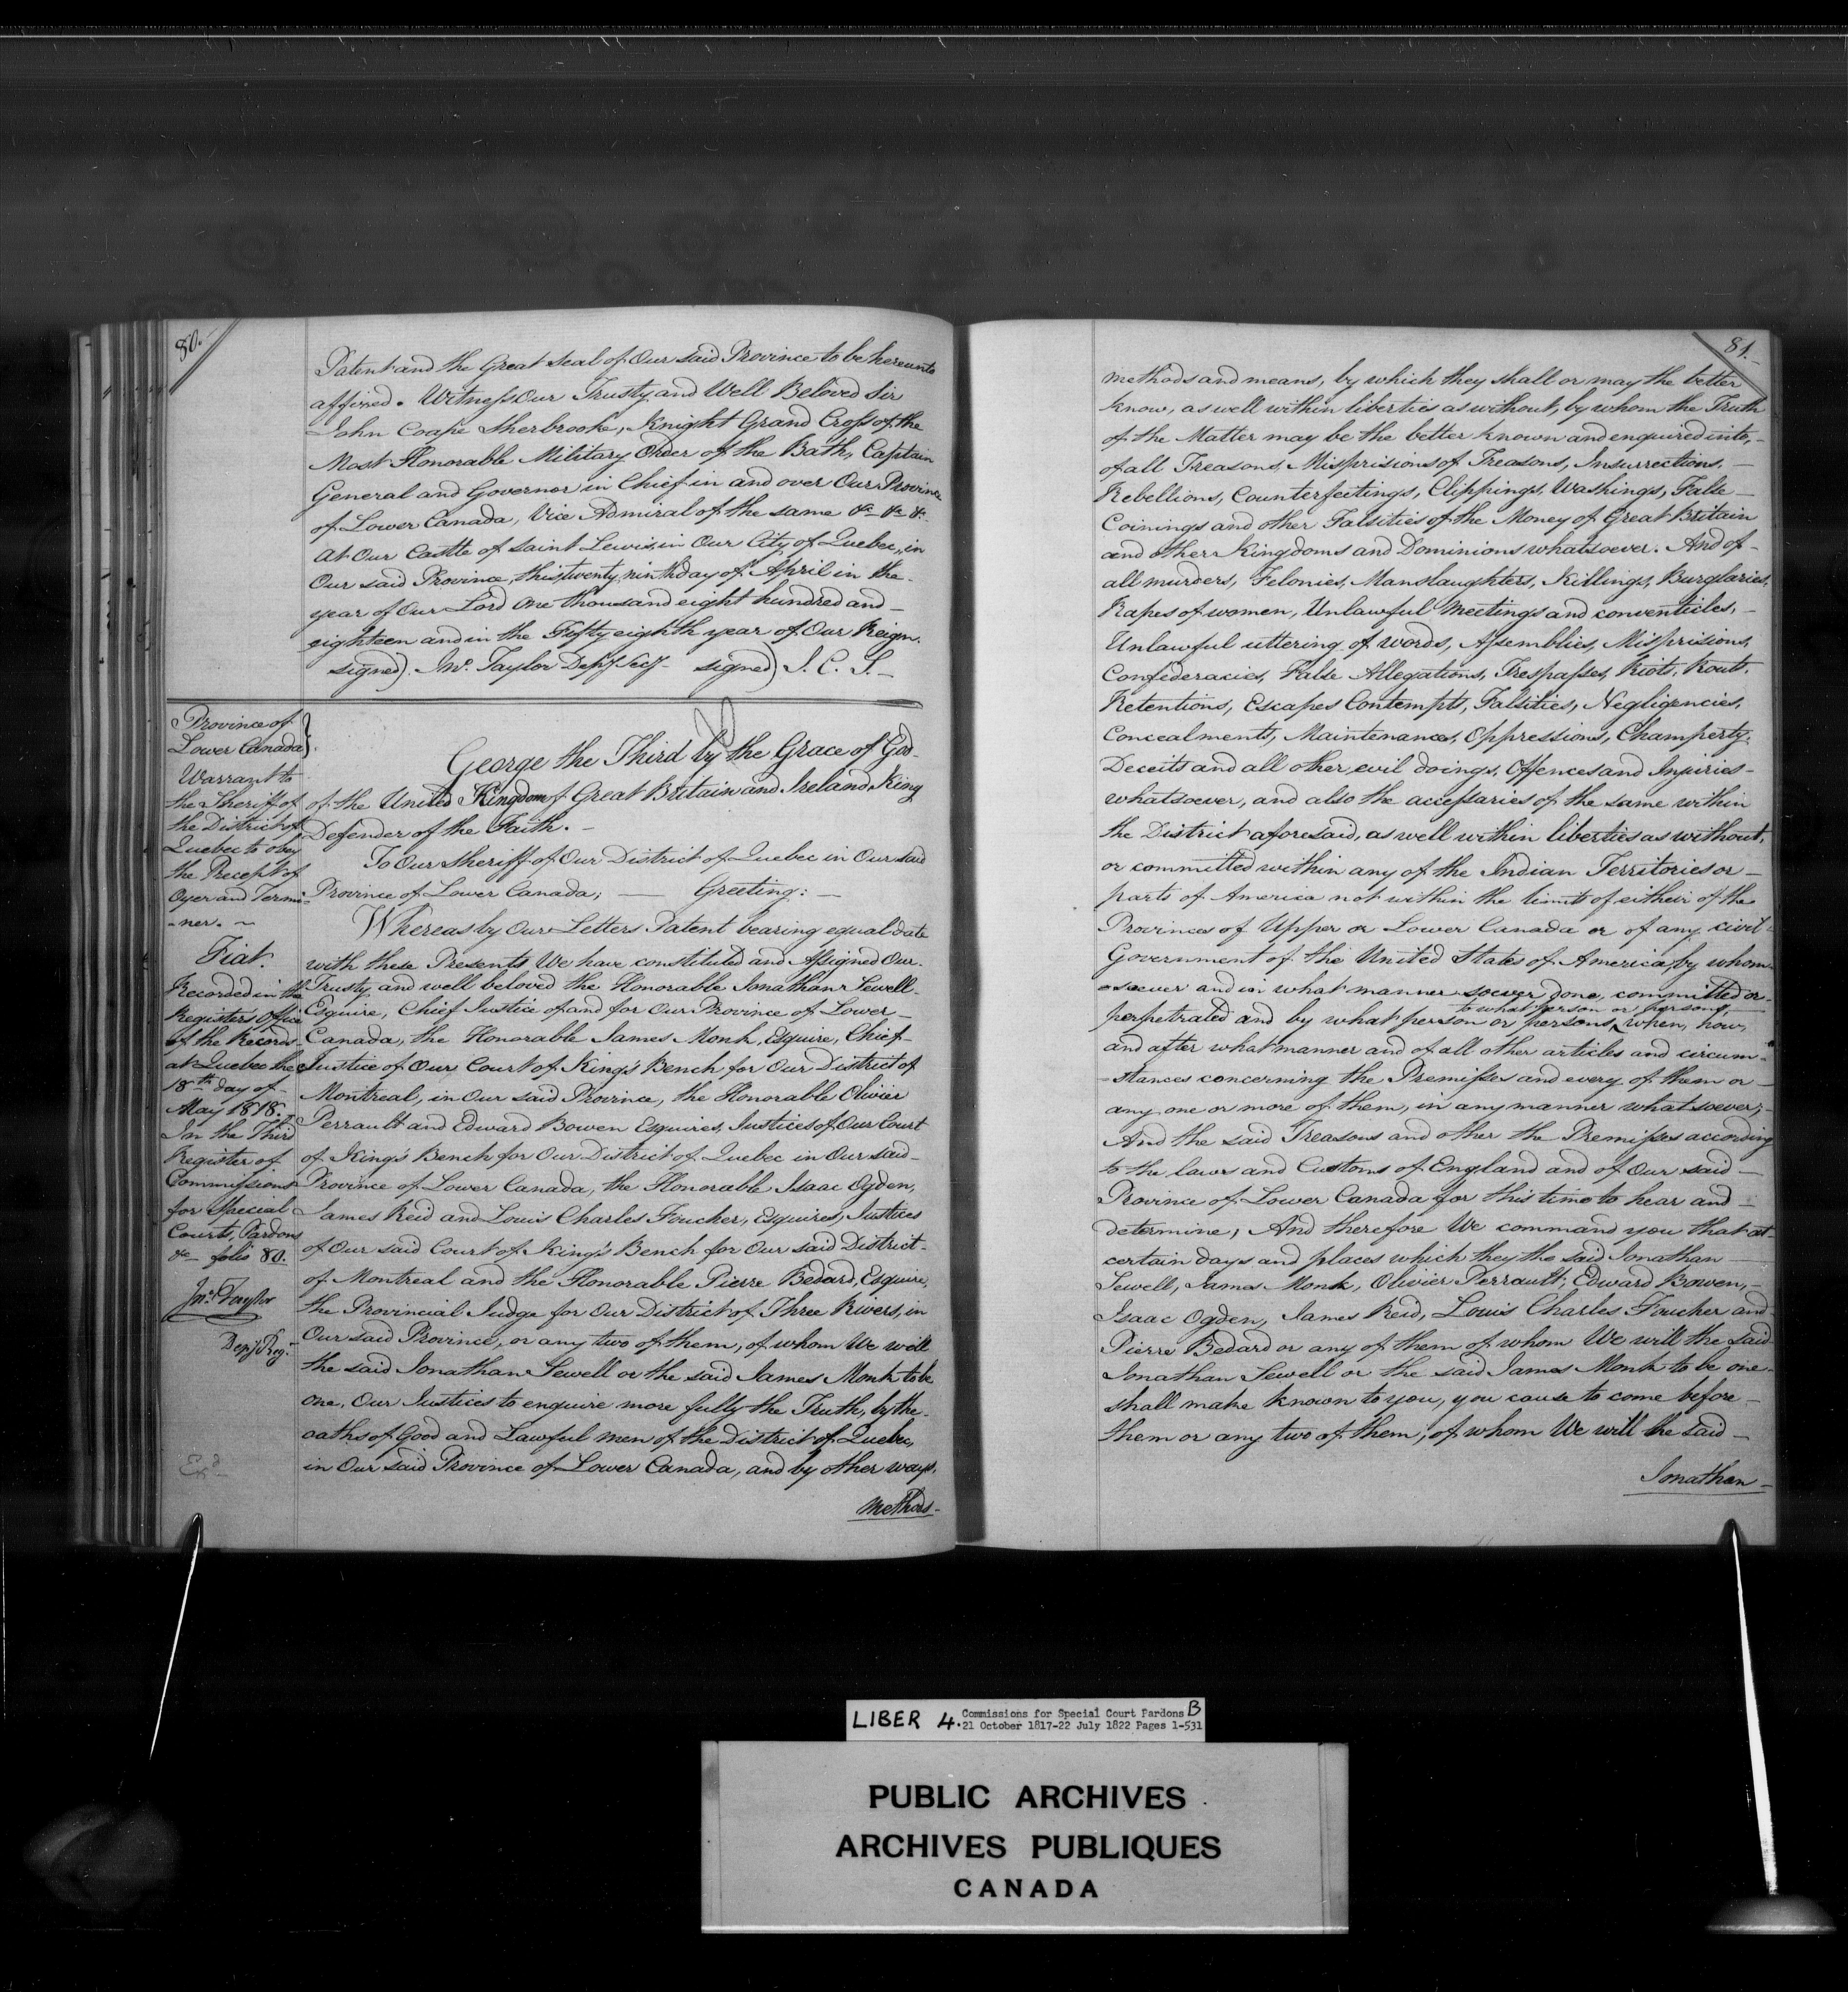 80.
Patent and the Great Seal of Our said Province to be hereunto
affixed. Witness Our Trusty and Well Beloved Sir
John Coape Sherbrooke, Knight Grand Cross of the
Most Honorable Military Order of the Bath, Captain
General and Governor in Chief in and over Our Province
of Lower Canada, Vice Admiral of the same &c &c &c
at Our Castle of Saint Lewis, in Our City of Quebec, in
Our said Province, this twenty ninth day of April in the
year of Our Lord One thousand eight hundred and
eighteen and in the Fifty eighth year of Our Reign.
signed). Jno. Taylor Depy Secy- signed) J. C. S.
Province of
Lower Canada}.
Warrant to
the Sheriff of
the District of
Quebec to obey
the Precept of
Oyer and Termi-
-ner. ~
Fiat.
Recorded in the
Registers Office
of the Records
at Quebec the
18th day of
May 1818.
In the Third
Register of
Commissions
for Special
Courts, Pardons
&c folio 80.
Jno. Taylor
Depy Reg.
Exd
George the Third by the Grace of God
of the United Kingdom of Great Britain and Ireland, King
Defender of the Faith. -
To Our Sheriff of Our District of Quebec in Our said
Province of Lower Canada; — Greeting: —
Whereas by Our Letters Patent bearing equal date
with these Presents We have constituted and Assigned Our
Trusty and well beloved the Honorable Jonathan Sewell
Esquire, Chief Justice of and for Our Province of Lower
Canada, the Honorable James Monk, Esquire, Chief
Justice of Our Court of King's Bench for Our District of
Montreal, in Our said Province, the Honorable Olivier
Perrault and Edward Bowen Esquires, Justices of Our Court
of King's Bench for Our District of Quebec in Our said
Province of Lower Canada, the Honorable Isaac Ogden,
James Reid and Louis Charles Foucher, Esquires, Justices
of Our said Court of King's Bench for Our said District
of Montreal and the Honorable Pierre Bedard, Esquire,
the Provincial Judge for Our District of Three Rivers, in
Our said Province, or any two of them, of whom We will
the said Jonathan Sewell or the said James Monk to be
one, Our Justices to enquire more fully the Truth, by the
oaths of Good and Lawful men of the District of Quebec,
in Our said Province of Lower Canada, and by other ways,
methods-
81.
methods and means, by which they shall or may the better
know, as well within liberties as without, by whom the Truth
of the Matter may be the better known and enquired into,
of all Treasons, Misprisions of Treasons, Insurrections,
Rebellions, Counterfeitings, Clippings, Washings, False
Coinings and other Falsities of the Money of Great Britain
and other Kingdoms and Dominions whatsoever. And of
all murders, Felonies, Manslaughters, Killings, Burglaries,
Rapes of women, Unlawful Meetings and conventicles,
Unlawful uttering of words, Assemblies, Misprisions,
Confederacies, False Allegations, Trespasses, Riots, Routs,
Retentions, Escapes Contempts, Falsities, Negligencies,
Concealments, Maintenances, Oppressions, Champerty,
Deceits and all other evil doings, Offences and Injuries
whatsoever, and also the accessaries of the same within
the District aforesaid, as well within liberties as without,
or committed within any of the Indian Territories or
parts of America not within the limits of either of the
Provinces of Upper or Lower Canada or of any civil
Government of the United States of America, by whom-
-soever and in what manner soever done, committed or
to what person or persons,
perpetrated and by what person or persons, when, how,
and after what manner and of all other articles and circum-
-stances concerning the Premisses and every of them or
any one or more of them, in any manner whatsoever;
And the said Treasons and other the Premisses according
to the laws and Customs of England and of Our said
Province of Lower Canada for this time to hear and
determine; And therefore We command you that at
certain days and places which they the said Jonathan
Sewell, James Monk, Olivier Perrault, Edward Bowen,
Isaac Ogden, James Reid, Louis Charles Foucher and
Pierre Bedard or any of them of whom We will the said
Jonathan Sewell or the said James Monk to be one
shall make known to you, you cause to come before
them or any two of them; of whom We will the said
Jonathan-
LIBER 4. Commissions for Special Court Pardons B
21 October 1817-22 July 1822 Pages 1-531
PUBLIC ARCHIVES
ARCHIVES PUBLIQUES
CANADA